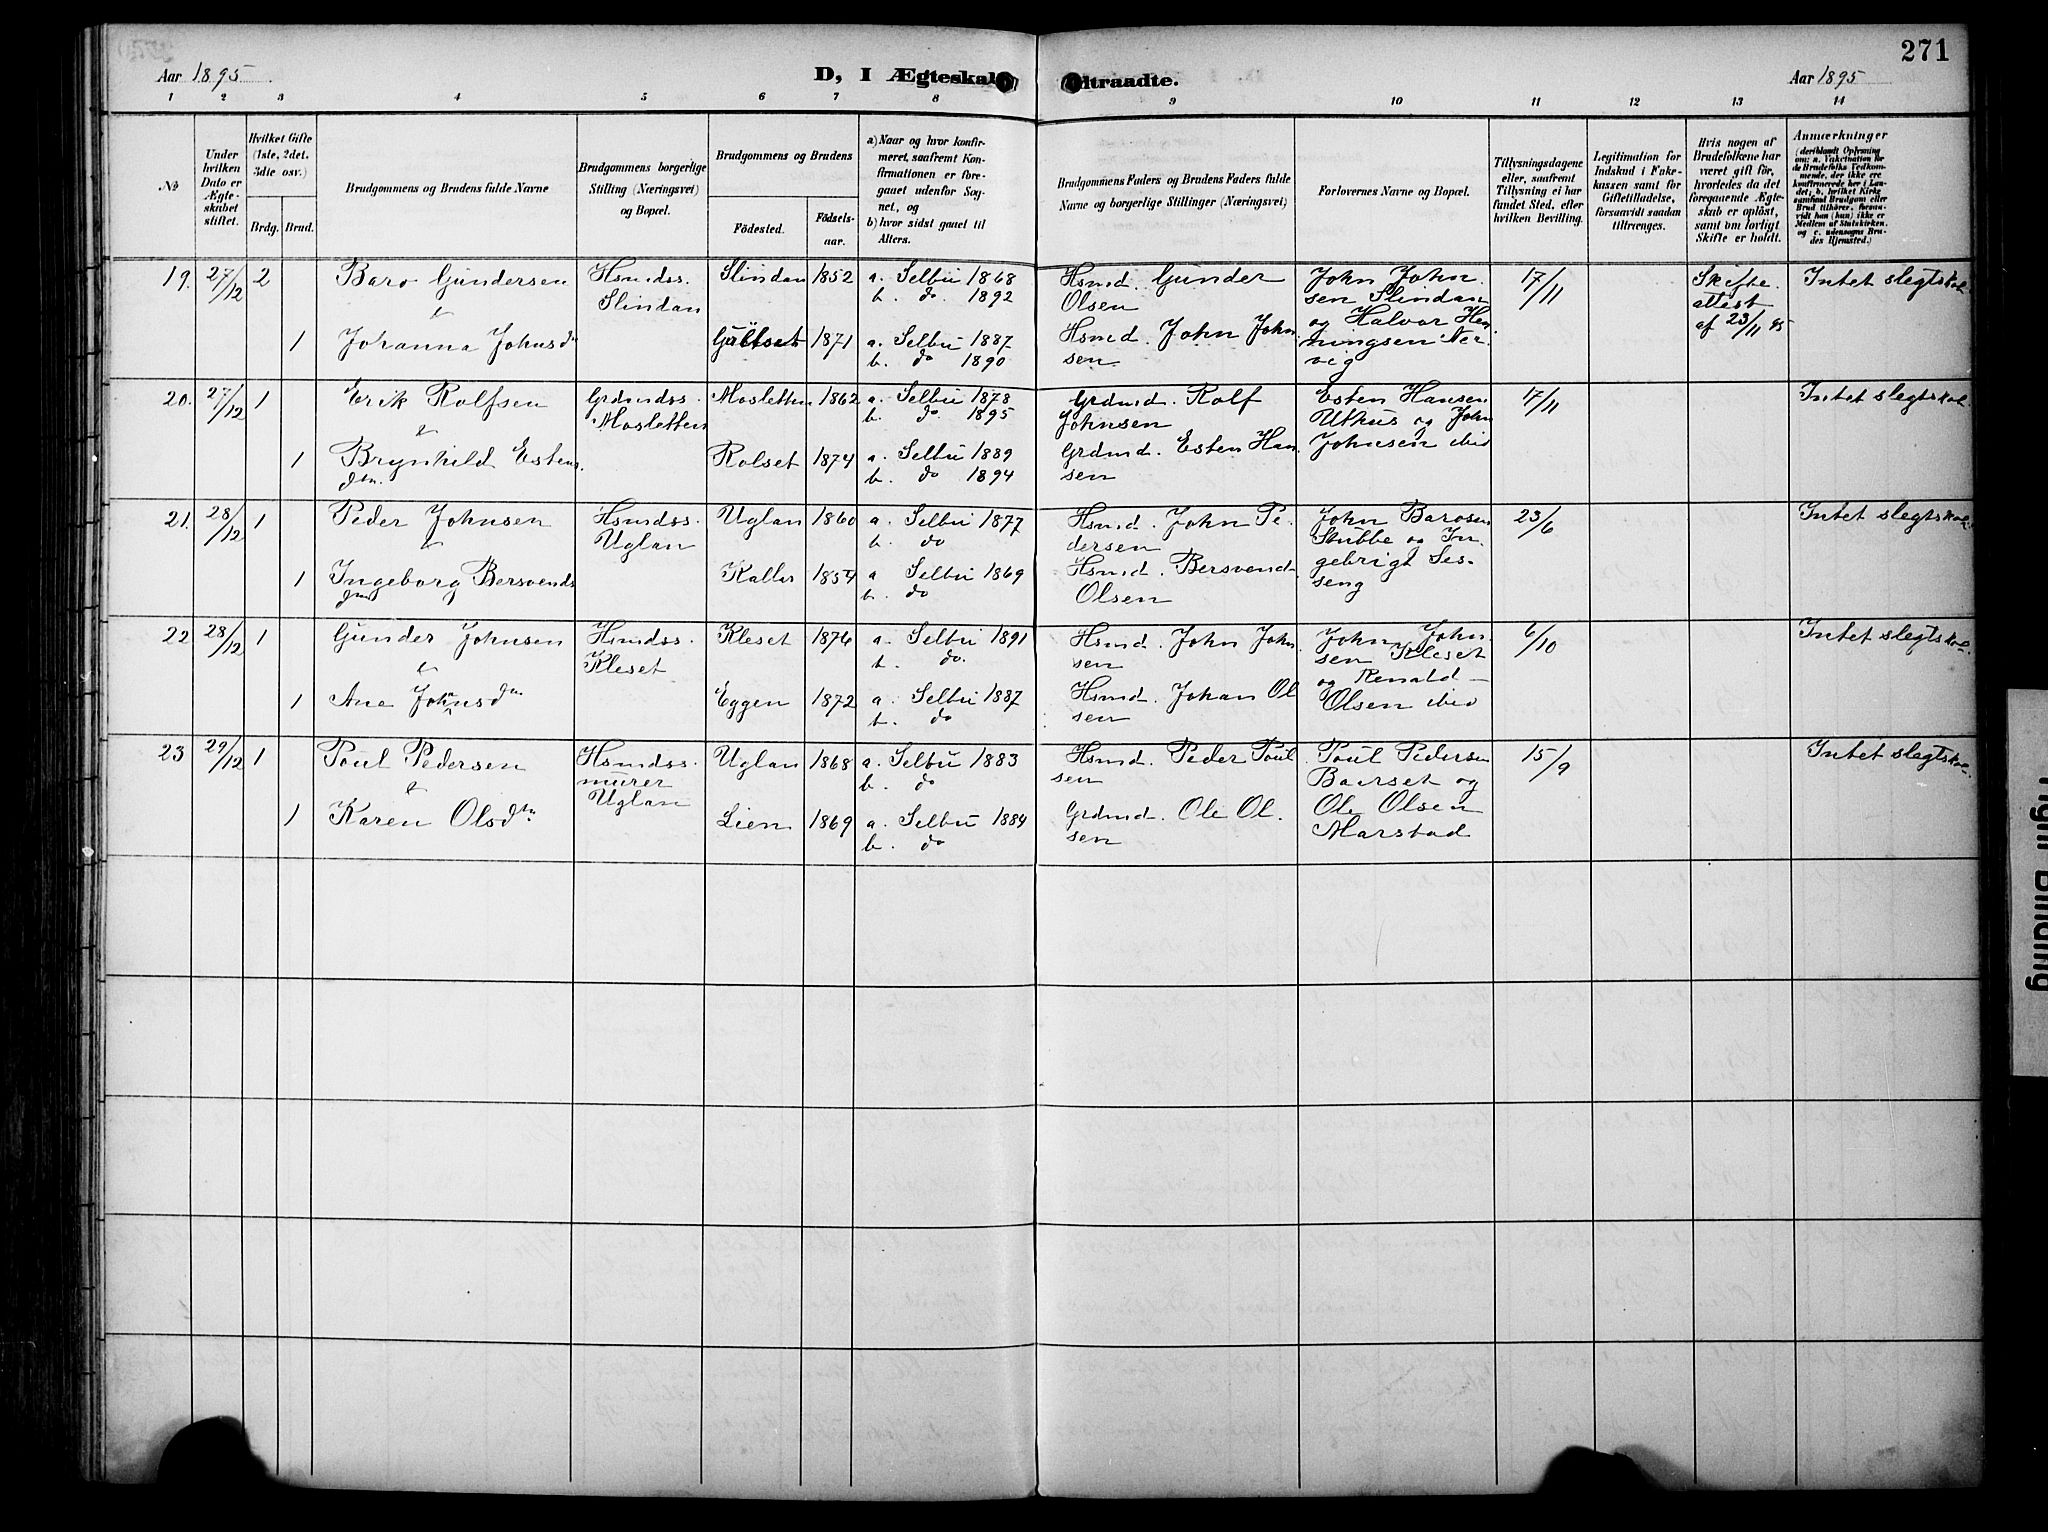 271
Aar 1895
D, I Ægteskab Indtraadte.
Aar 1895
1 2 3 4 5 6 7 8 9 10 11 12 13 14
№
Under hvilken Dato er Ægteskabet stiftet.
Hvilket Gifte (1ste, 2det, 3die osv.)
Brdg. Brud.
Brudgommens og Brudens fulde Navne
Brudgommens borgerlige Stilling (Næringsvei) og Bopæl.
Brudgommens og Brudens
Födested.
Födselsaar.
a) Naar og hvor konfirmeret, saafremt Konfirmationen er foregaaet udenfor Sognet, og
b) hvor sidst gaaet til Alters.
Brudgommens Faders og Brudens Faders fulde Navne og borgerlige Stillinger (Næringsvei)
Forlovernes Navne og Bopæl.
Tillysningsdagene eller, saafremt Tillysning ei har fundet Sted, efter hvilken Bevilling.
Legitimation for Indskud i Fakekassen samt for Giftetilladelse, forsaavidt saadan tiltrænges.
Hvis nogen af Brudefolkene har været gift för, hvorledes da det foregaaende Ægteskab er oplöst, samt om lovligt Skifte er holdt.
Anmærkninger
(deriblandt Oplysning om: a. Vakcination for de Brudefolks Vedkommende, der ikke ere konfirmerede her i Landet; b. hvilket Kirkesamfund Brudgom eller Brud tilhörer, forsaavidt han (hun) ikke er Medlem af Statskirken, og c. udensogns Brudes Hjemsted.)
19. 27/12 2 Baro Gundersen Hsmdss. Slindan Slindan 1852 a. Selbu 1868 b. do. 1892 Hsmd. Gunder Olsen John Johnsen Slindan og Halvor Henningsen Nervig 17/11 Skifteattest af 23/11 95 Intet slegtskab.
&
1 Johanna Johnsdn 1871 a. Selbu 1887 b. do 1890 Hsmd. John Johnsen
20. 27/12 1 Erik Rolfsen Grdmdss. Mosletten Mosletten 1862 a. Selbu 1878 b. do 1895 Grdmd. Rolf Johnsen Esten Hansen Uthus og John Johnsen ibid 17/11 Intet slegtskab.
&
1 Brynhild Estensdtn. Rolset 1874 a. Selbu 1889 b. do 1894 Grdmd. Esten Hansen
21. 28/12 1 Peder Johnsen Hsmdss. Uglan Uglan 1860 a. Selbu 1877 b. do Hsmd. John Pedersen John Barosen Stubbe og Ingebrigt Sesseng 23/6 Intet slegtskab.
&
1 Ingeborg Bersvendsdtn Kallar 1854 a Selbu 1869 b. do Hsmd. Bersvend Olsen
22 28/12 1 Gunder Johnsen Hsmdss. Kleset Kleset 1876 a. Selbu 1891 b. do. Hsmd. John Johnsen John Johnsen Kleset og Renald Olsen ibid 6/10 Intet slegtskab.
&
1 Ane Johnsdtn Eggen 1872 a. Selbu 1887 b. do Hsmd. Johan Olsen
23 29/12 1 Poul Pedersen Hsmdss. murer Uglan Uglan 1868 a. Selbu 1883 b. do Hsmd. Peder Poulsen Poul Pedersen Baarset og Ole Olsen Marstad 15/9 Intet slegtskab.
&
1 Karen Olsdtn Lien 1869 a. Selbu 1884 b. do Grdmd. Ole Olsen